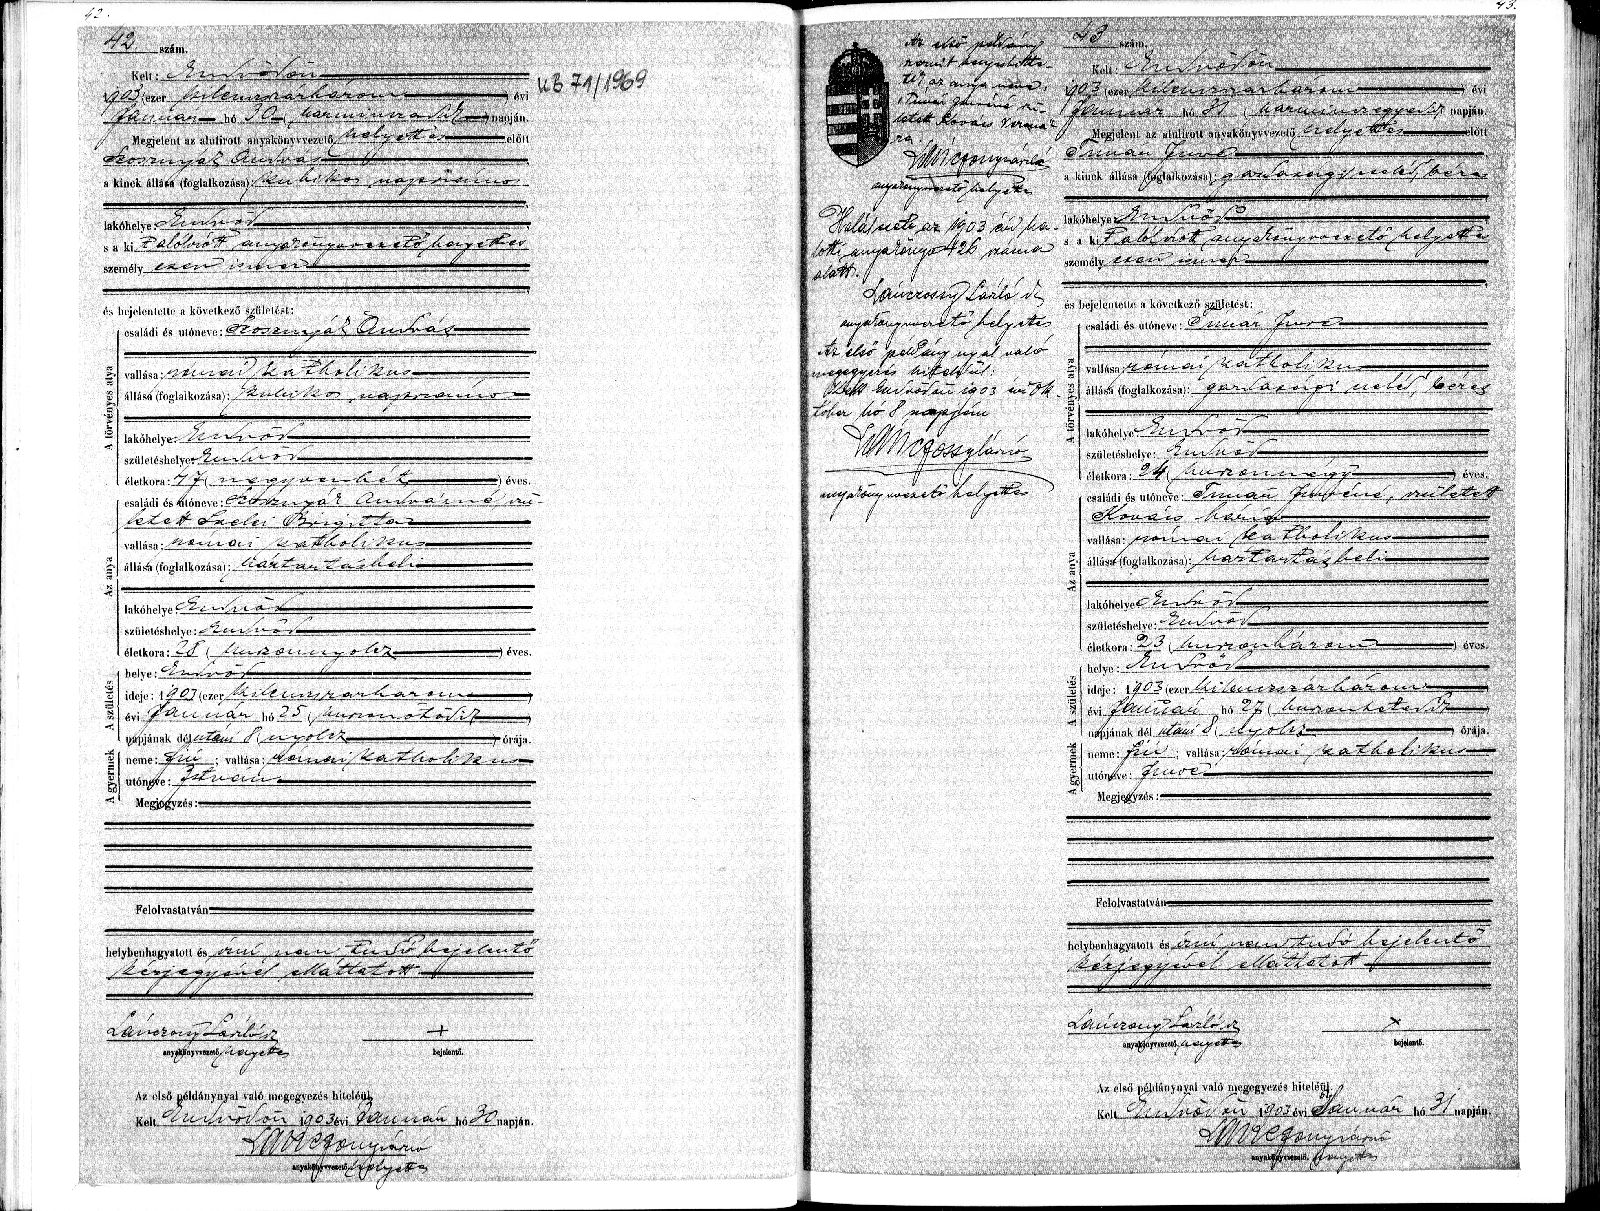 42.
42. szám.
Kelt: Endrődön
1903 (ezer kilenczszázharom) évi
Január hó 30 (harminczadik) napján.
Megjelent az alulirott anyakönyvvezető helyettes előtt
András
a kinek állása (foglalkozása): kubikos napszámos
lakóhelye Endrőd
s a ki alólirott anyakönyvvezető helyettes
személyesen ismer
és bejelentette a következő születést:
A törvényes atya
családi és utóneve: András
vallása: római katholikus
állása (foglalkozása): kubikos napszámos
lakóhelye: Endrőd
születéshelye: Endrőd
életkora: 47 (negyvenhét) éves.
Az anya
családi és utóneve: Andrásné, szü-
letett Szelei Brigitta
vallása: római katholikus
állása (foglalkozása): háztartásbeli
lakóhelye Endrőd
születéshelye: Endrőd
életkora: 28 (huszonnyolcz) éves.
A születés
helye: Endrőd
ideje: 1903 (ezer kilenczszázharom)
évi Január hó 25 (huszonötödik)
napjának dél utáni 8 nyolcz órája.
A gyermek
neme: fiú; vallása: római katholikus
utóneve: István
Megjegyzés:
Felolvastatván
helybenhagyatott és írni nem tudó bejelentő
kézjegyével elláttatott
László
anyakönyvvezető, helyettes
+
bejelentő.
Az első példánynyal való megegyezés hiteléül.
Kelt Endrődön 1903 évi Január hó 30 napján.
anyakönyvvezető, helyettes
KB 71/1969
43.
43 szám.
Kelt: Endrődön
1903 (ezer kilenczszázharom) évi
Január hó 31 (harminczegyedik) napján.
Megjelent az alulirott anyakönyvvezető helyettes előtt
Timár Imre
a kinek állása (foglalkozása): gazdasági cseléd, béres
lakóhelye Endrőd
s a ki alólirott anyakönyvvezető helyettes
személyesen ismer
és bejelentette a következő születést:
A törvényes atya
családi és utóneve: Timár Imre
vallása: római katholikus
állása (foglalkozása): gazdasági cseléd, béres
lakóhelye: Endrőd
születéshelye: Endrőd
életkora: 24 (huszonnégy) éves.
Az anya
családi és utóneve: Timár Imréné, született
Kovács Mária
vallása: római katholikus
állása (foglalkozása): háztartásbeli
lakóhelye Endrőd
születéshelye: Endrőd
életkora: 23 (huszonhárom) éves.
A születés
helye: Endrőd
ideje: 1903 (ezer kilenczszázhárom)
évi Január hó 27 (huszonhetedik)
napjának dél utáni 8 nyolcz órája.
A gyermek
neme: fiú; vallása: római katholikus
utóneve: Imre
Megjegyzés:
Felolvastatván
helybenhagyatott és írni nem tudó bejelentő
kézjegyével elláttatott
László
anyakönyvvezető, helyettes
×
bejelentő.
Az első példánynyal való megegyezés hiteléül.
Kelt Endrődön 1903 évi Január hó 31 napján.
anyakönyvvezető, helyettes
Az első példány
az anya neve
Timár Imréné szü-
letett Kovács
ra.
anyakönyvvezető helyettes
Halálesete az 1903 évi ha-
lotti anyakönyv 426 száma
alatt.
László
anyakönyvvezető helyettes
Az első példánynyal való
megegyezés hiteléül:
Kelt Endrődön 1903 évi Ok-
tóber hó 8 napján
anyakönyvvezető helyettes